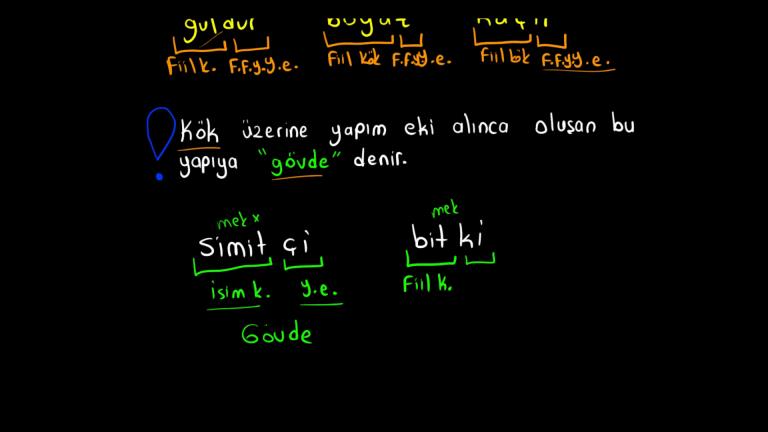 güldür
Fiil k. F.F.y.y.e. Fiil kök F.F.y.y.e. Fiil kök F.F.y.y.e.
Kök üzerine yapım eki alınca oluşan bu
yapıya "gövde" denir.
mek x mek
Simit çi bit ki
isim k. y.e. Fiil k.
Gövde